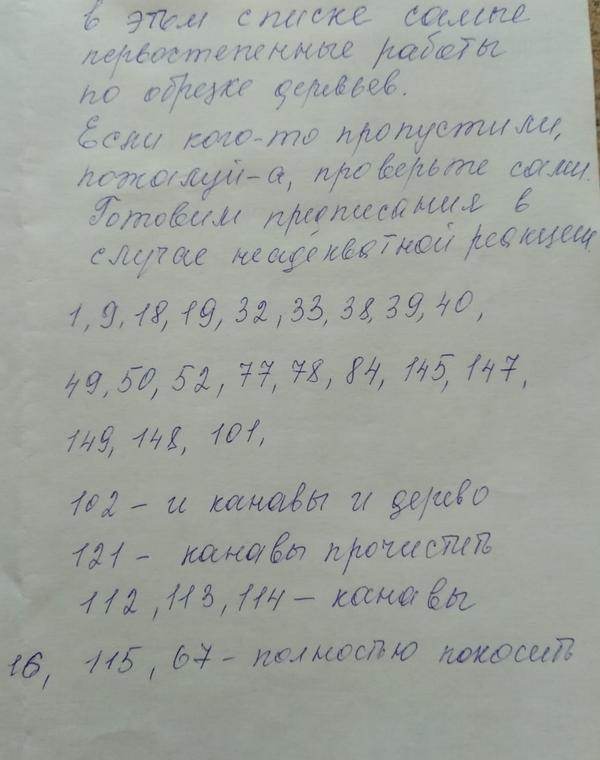 в этом списке самые
первостепенные работы
по обрезке деревьев.
Если кого-то пропустили,
пожалуй-а, проверьте сами.
Готовим предписания в
случае неадекватной реакции
1, 9, 18, 19, 32, 33, 38, 39, 40,
49, 50, 52, 77, 78, 84, 145, 147,
149, 148, 101,
102 - и канавы и дерево
121 - канавы прочистить
112, 113, 114 - канавы
16, 115, 67 - полностью покосить